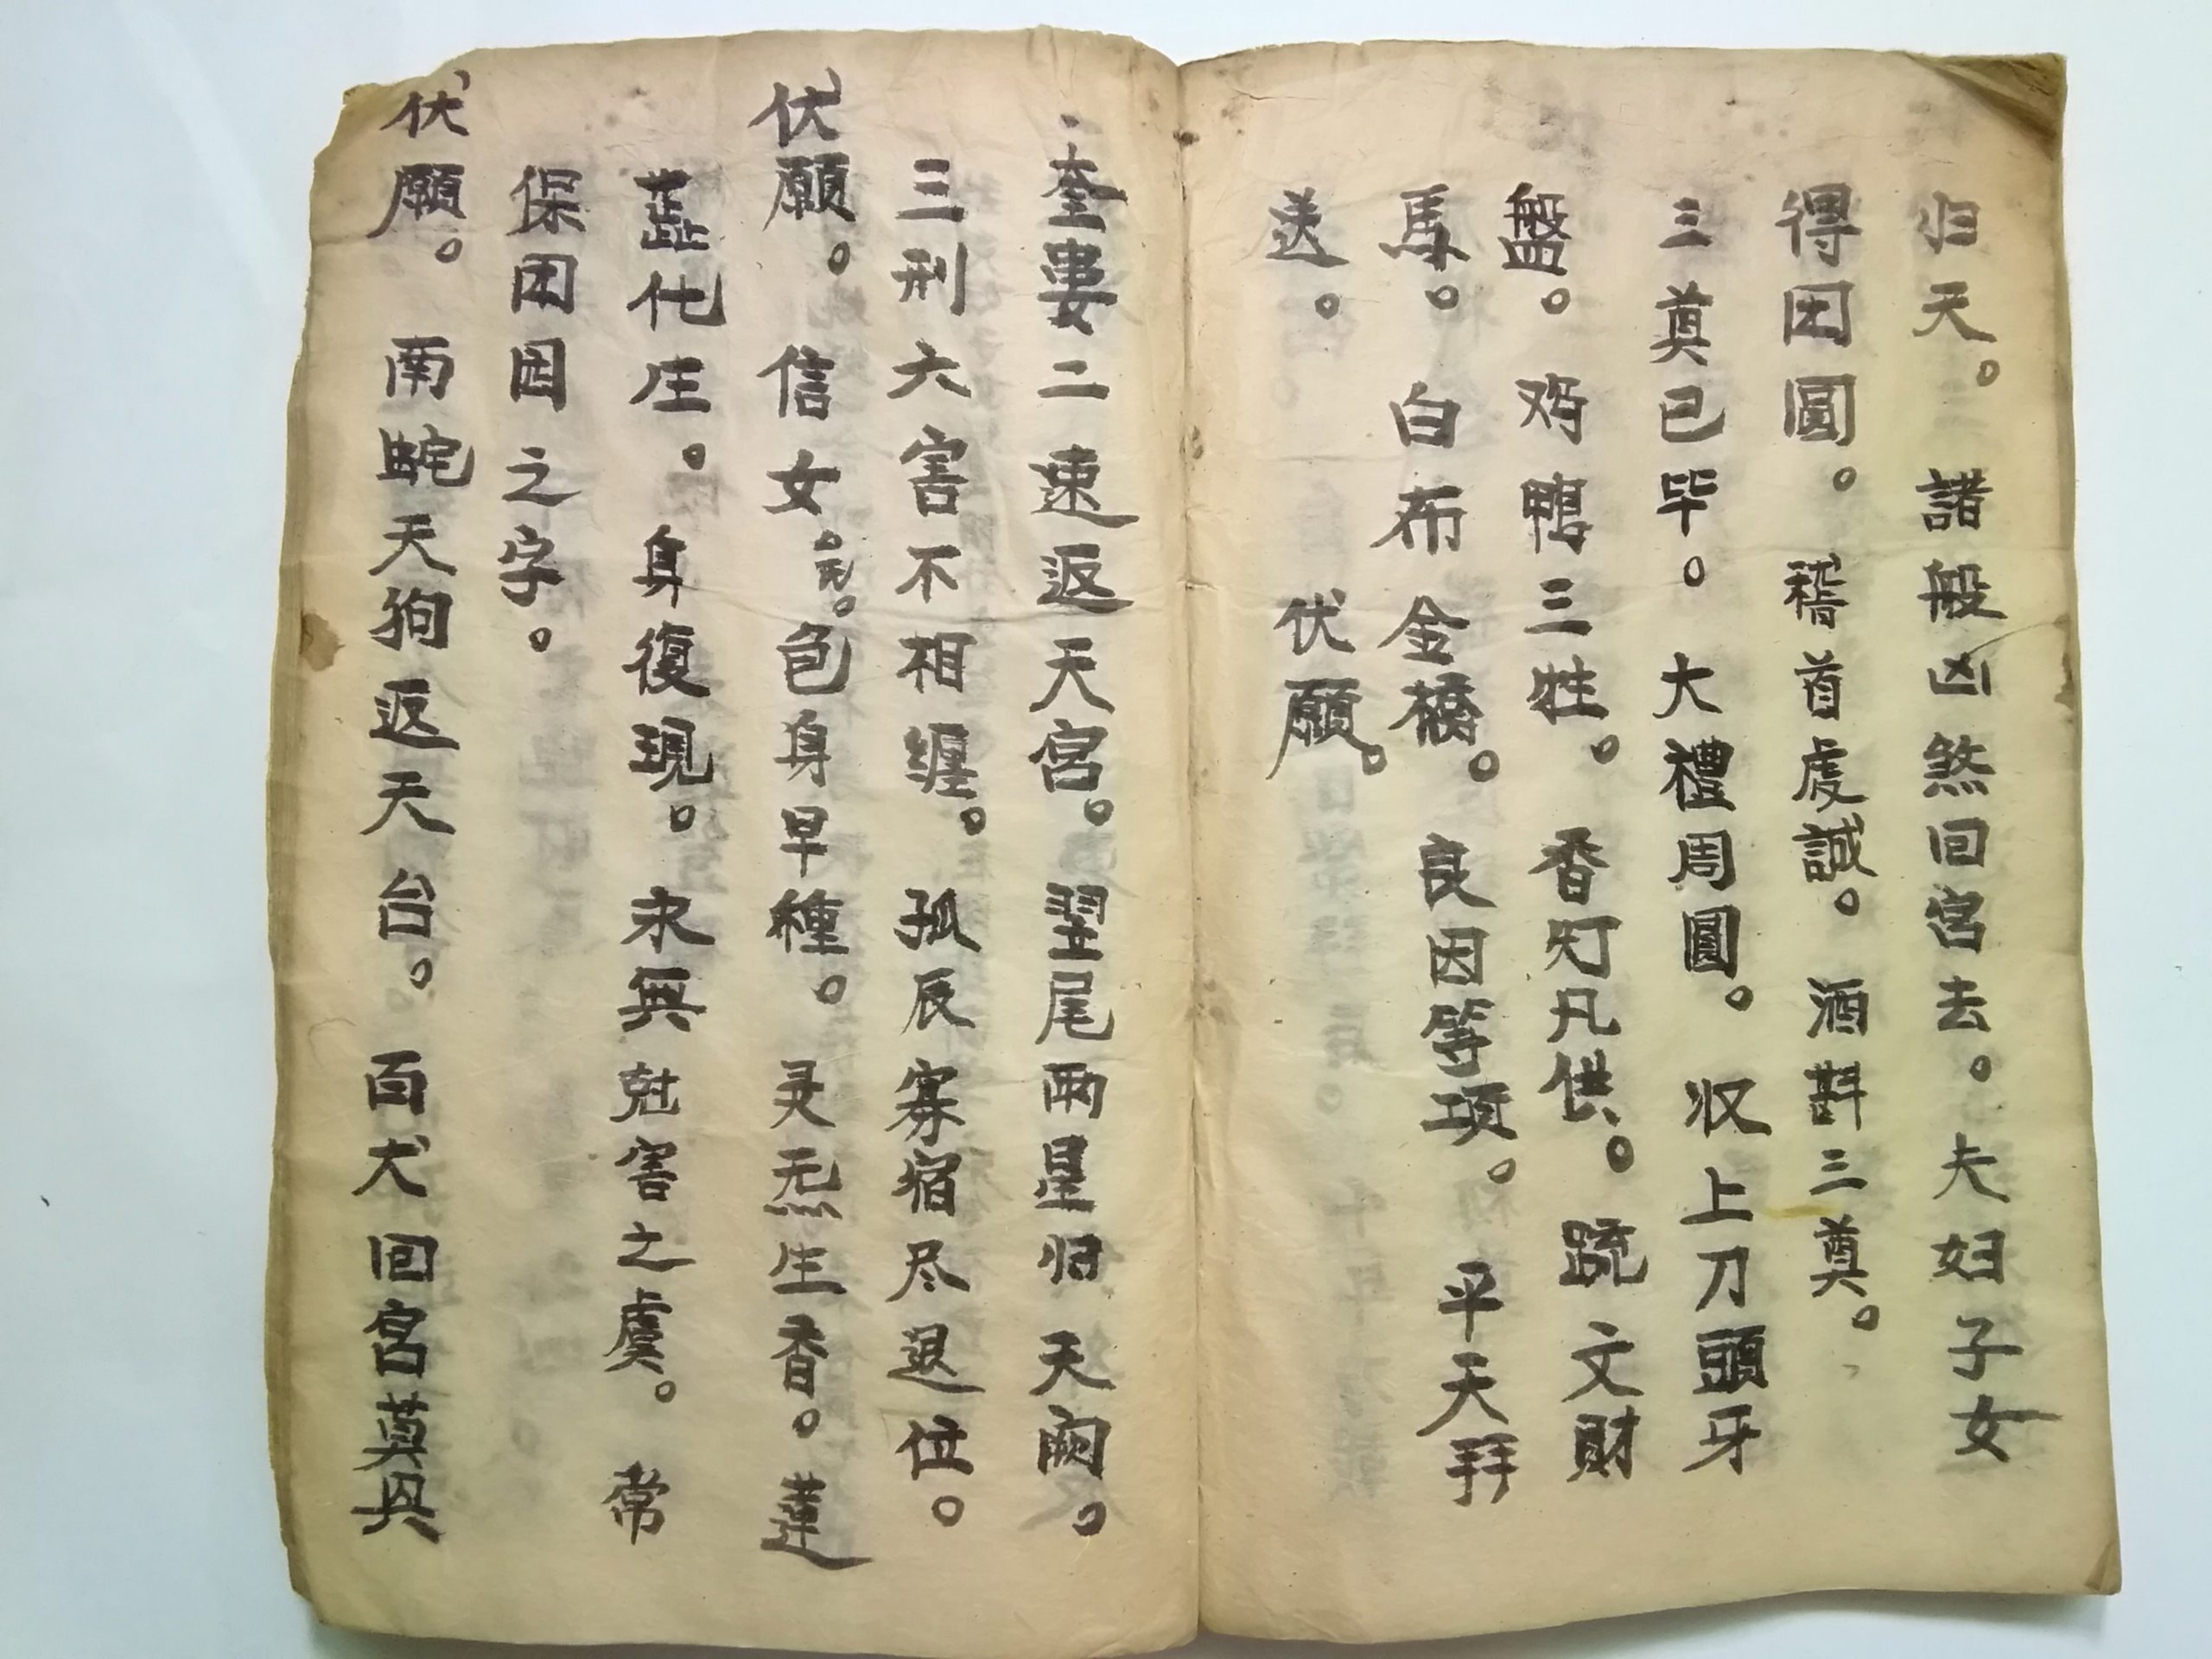 归天。諸般凶煞回宮去。夫妇子女
得团圓。稽首虔誠。酒斟三奠。
三奠已毕。大禮周圓。收上刀頭牙
盤。鸡鴨三牲。香灯凡供。疏文財
馬。白布金橋。良因等項。平天拜
送。伏願。
奎婁二速返天宮。翌尾两星归天阙。
三刑六害不相缠。孤辰寡宿尽退位。
伏願。信女。色身早種。灵炁生香。蓮
蕋化生。身復現。永無尅害之虞。常
保团圆之字。
伏願。南蛇天狗返天台。百犬回宮莫